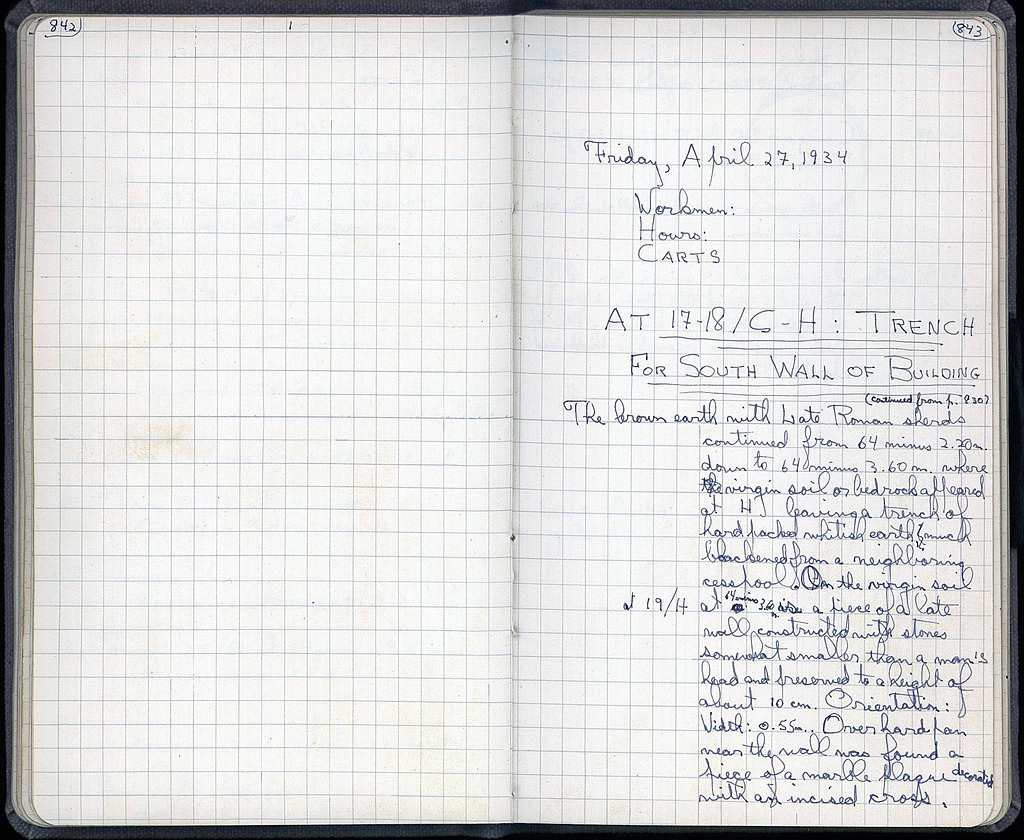 842
843
Friday, April 27, 1934
Workmen:
Hours:
CARTS
AT 17-18/G-H: TRENCH
FOR SOUTH WALL OF BUILDING
(continued from p. 830)
The brown earth with Late Roman sherds
continued from 64 minus 2.20m.
down to 64 minus 3.60m. where
virgin soil or bedrock appeared
at H leaving a trench of
hard packed whitish earth much
blackened from a neighboring
cesspool. On the virgin soil
at 19/H at 64 minus 3.60 m. a piece of a late
wall constructed with stones
somewhat smaller than a man's
head and preserved to a height of
about 10 cm. Orientation:
Width: 0.55m. Over hardpan
near the wall was found a
piece of a marble plaque decorated
with an incised cross.